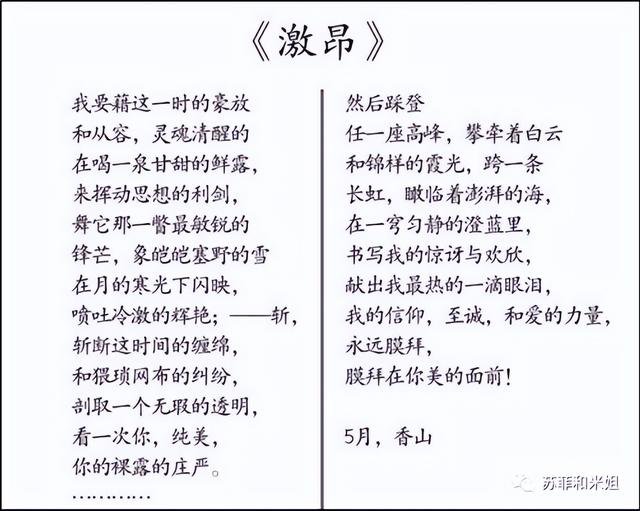 《激昂》
我要藉这一时的豪放
和从容，灵魂清醒的
在喝一泉甘甜的鲜露，
来挥动思想的利剑，
舞它那一瞥最敏锐的
锋芒，象皑皑塞野的雪
在月的寒光下闪映，
喷吐冷激的辉艳；——斩，
斩断这时间的缠绵，
和猥琐网布的纠纷，
剖取一个无瑕的透明，
看一次你，纯美，
你的裸露的庄严。
…………
然后踩登
任一座高峰，攀牵着白云
和锦样的霞光，跨一条
长虹，瞰临着澎湃的海，
在一穹匀静的澄蓝里，
书写我的惊讶与欢欣，
献出我最热的一滴眼泪，
我的信仰，至诚，和爱的力量，
永远膜拜，
膜拜在你美的面前！
5月，香山
苏菲和米姐